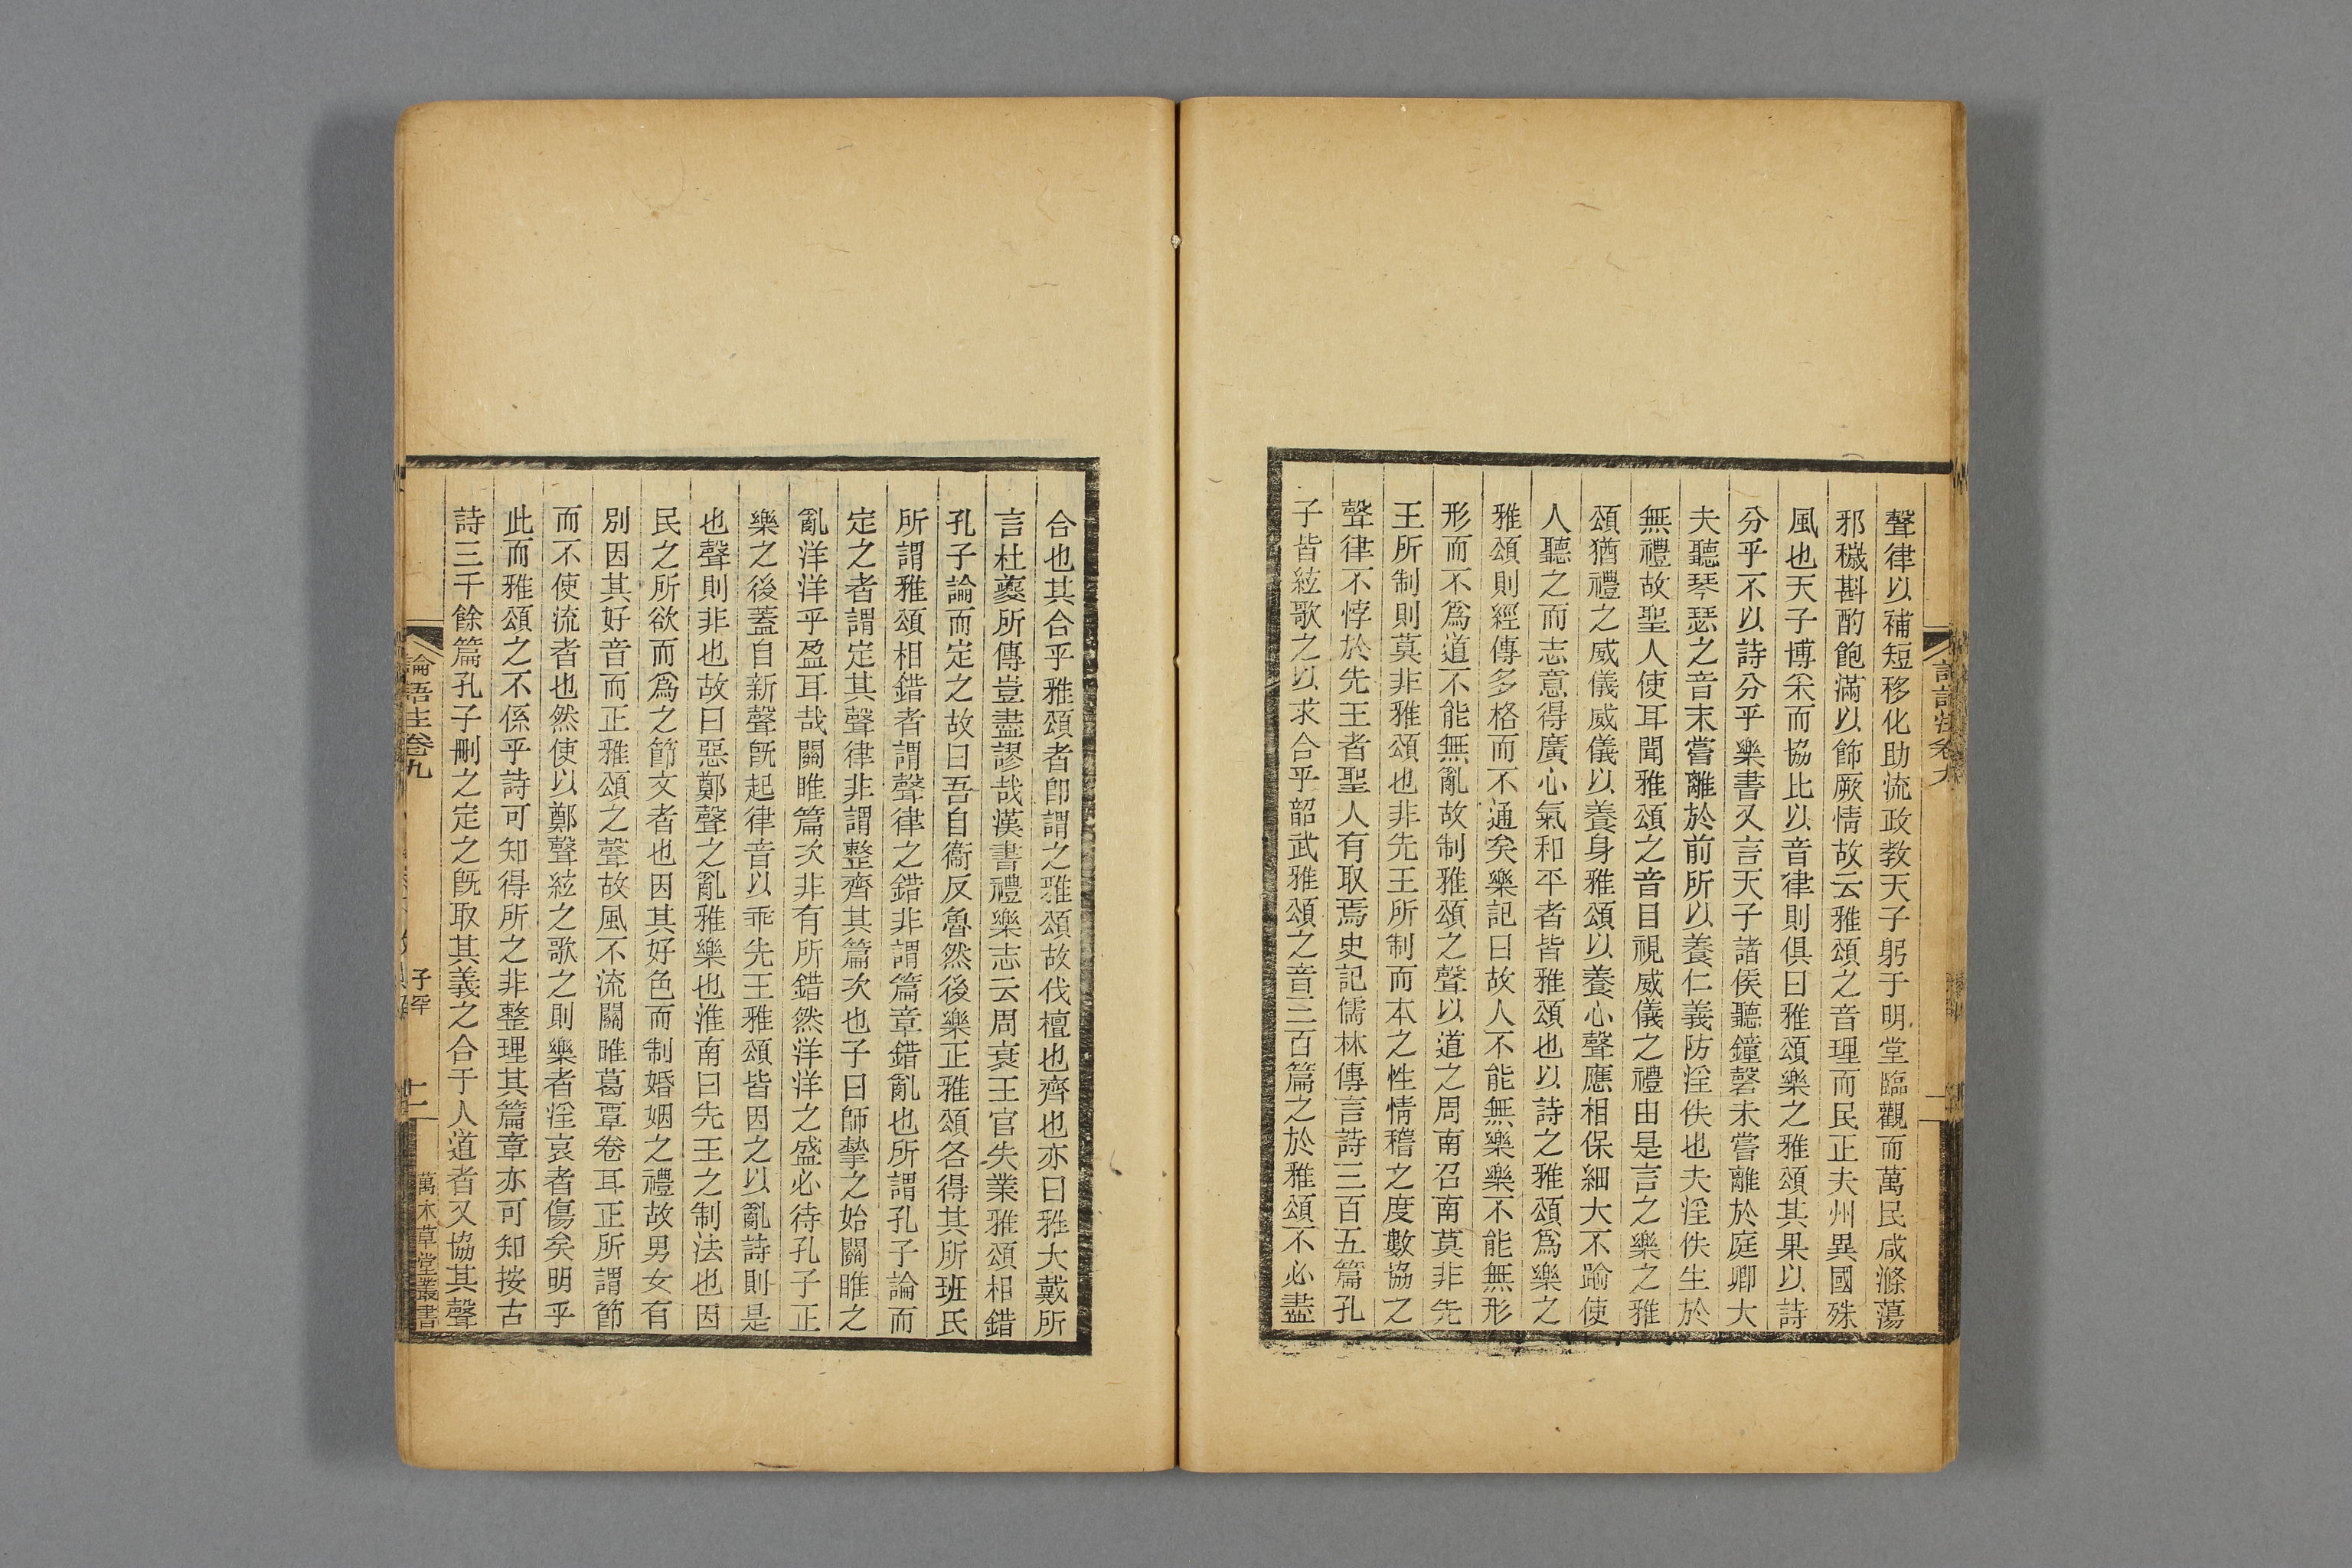 聲律以補短移化助流政教天子躬于明堂臨觀而萬民咸滌蕩
邪穢斟酌飽滿以飾厥情故云雅頌之音理而民正夫州異國殊
風也天子博采而協比以音律則俱曰雅頌樂之雅頌其果以詩
分乎不以詩分乎樂書又言天子諸侯聽鐘磬未嘗離於庭卿大
夫聽琴瑟之音未嘗離於前所以養仁義防淫佚也夫淫佚生於
無禮故聖人使耳聞雅頌之音目視威儀之禮由是言之樂之雅
頌猶禮之威儀威儀以養身雅頌以養心聲應相保細大不踰使
人聽之而志意得廣心氣和平者皆雅頌也以詩之雅頌爲樂之
雅頌則經傳多格而不通矣樂記曰故人不能無樂樂不能無形
形而不爲道不能無亂故制雅頌之聲以道之周南召南莫非先
王所制則莫非雅頌也非先王所制而本之性情稽之度數協之
聲律不悖於先王者聖人有取焉史記儒林傳言詩三百五篇孔
子皆絃歌之以求合乎韶武雅頌之音三百篇之於雅頌不必盡
合也其合乎雅頌者卽謂之雅頌故伐檀也齊也亦曰雅大戴所
言杜夔所傳豈盡謬哉漢書禮樂志云周衰王官失業雅頌相錯
孔子論而定之故曰吾自衞反魯然後樂正雅頌各得其所班氏
所謂雅頌相錯者謂聲律之錯非謂篇章錯亂也所謂孔子論而
定之者謂定其聲律非謂整齊其篇次也子曰師摯之始關雎之
亂洋洋乎盈耳哉關雎篇次非有所錯然洋洋之盛必待孔子正
樂之後蓋自新聲旣起律音以乖先王雅頌皆因之以亂詩則是
也聲則非也故曰惡鄭聲之亂雅樂也淮南曰先王之制法也因
民之所欲而爲之節文者也因其好色而制婚姻之禮故男女有
別因其好音而正雅頌之聲故風不流關雎葛覃卷耳正所謂節
而不使流者也然使以鄭聲絃之歌之則樂者淫哀者傷矣明乎
此而雅頌之不係乎詩可知得所之非整理其篇章亦可知按古
詩三千餘篇孔子刪之定之旣取其義之合于人道者又協其聲
論語注卷九
子罕
十二
萬木草堂叢書